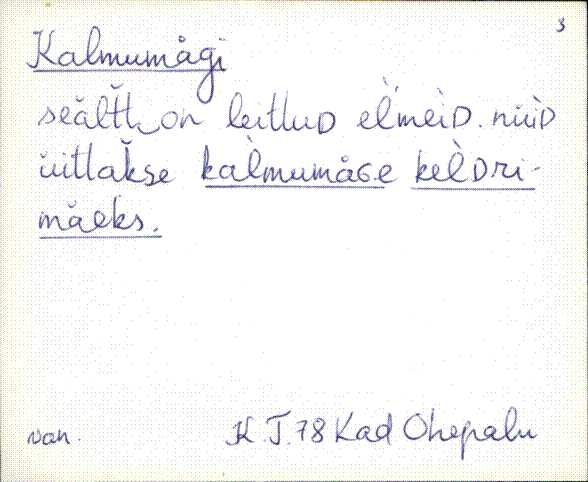 3
Kalmumägi
seäl̆t̆t on leitluD el̀meìD. nüìD
üitlak̆se kal̀mumäGe kel̀Dri-
mäeks.
van. K. T. 78 Kad Ohepalu